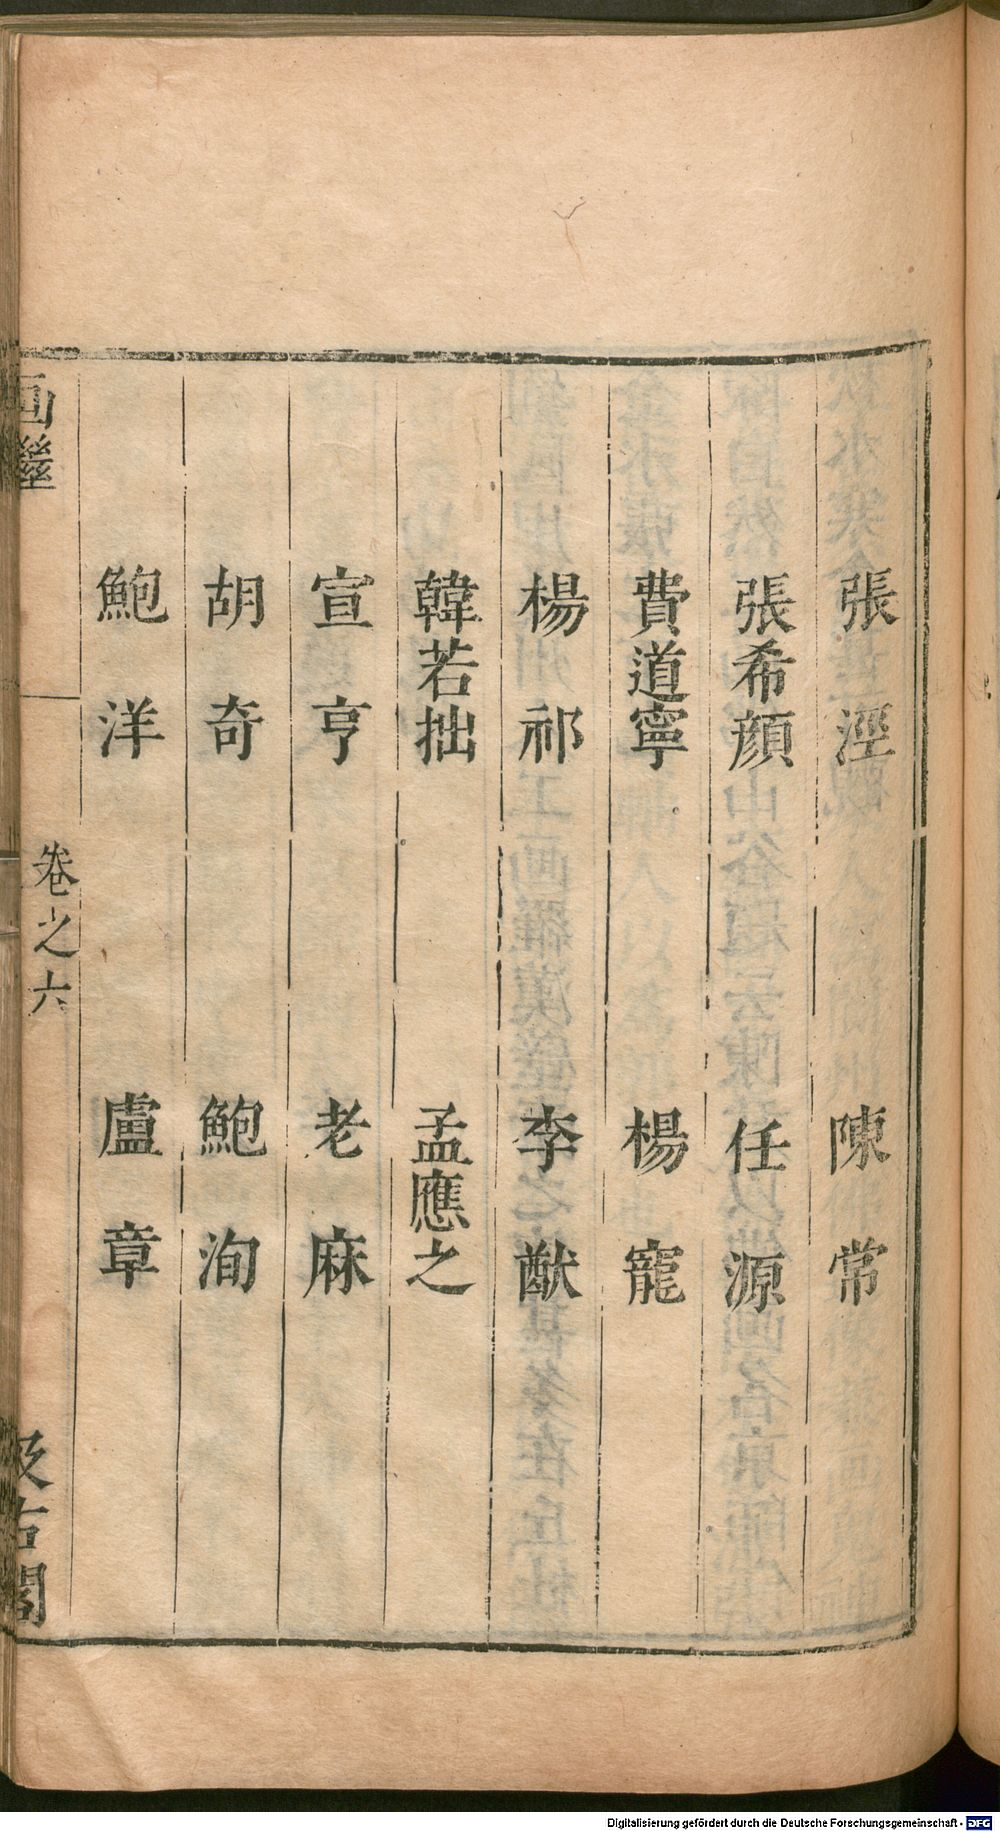 張涇　陳常
張希顏　任源
費道寧　楊寵
楊祁　李猷
韓若拙　孟應之
宣亨　老麻
胡奇　鮑洵
鮑洋　盧章
画繼　卷之六　汲古閣
Digitalisierung gefördert durch die Deutsche Forschungsgemeinschaft - DFG